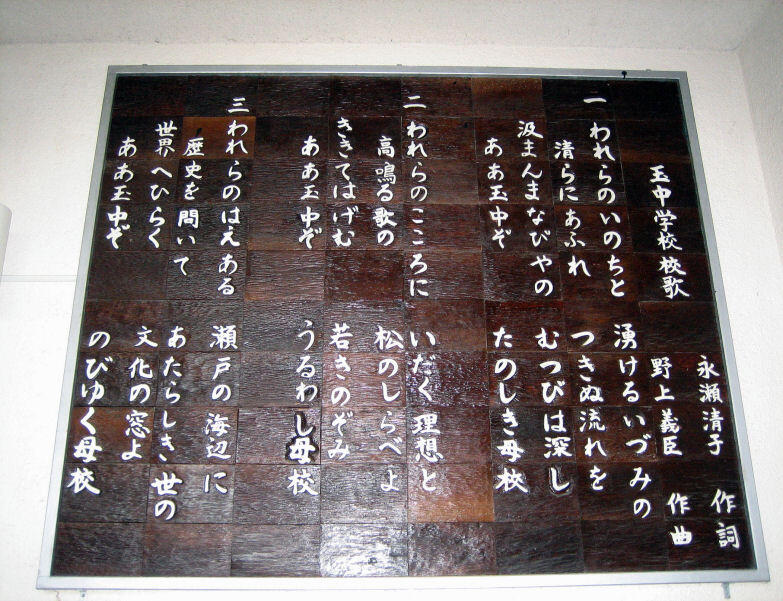 玉中学校 校歌
永瀬清子 作詞
野上義臣 作曲
一 われらのいのちと 湧けるいづみの
清らにあふれ つきぬ流れを
汲まんまなびやの むつびは深し
ああ玉中ぞ たのしき母校
二 われらのこころに いだく理想と
高鳴る歌の 松のしらべよ
ききてはげむ 若きのぞみ
ああ玉中ぞ うるわし母校
三 われらのはえある 瀬戸の海辺に
歴史を問いて あたらしき世の
世界へひらく 文化の窓よ
ああ玉中ぞ のびゆく母校